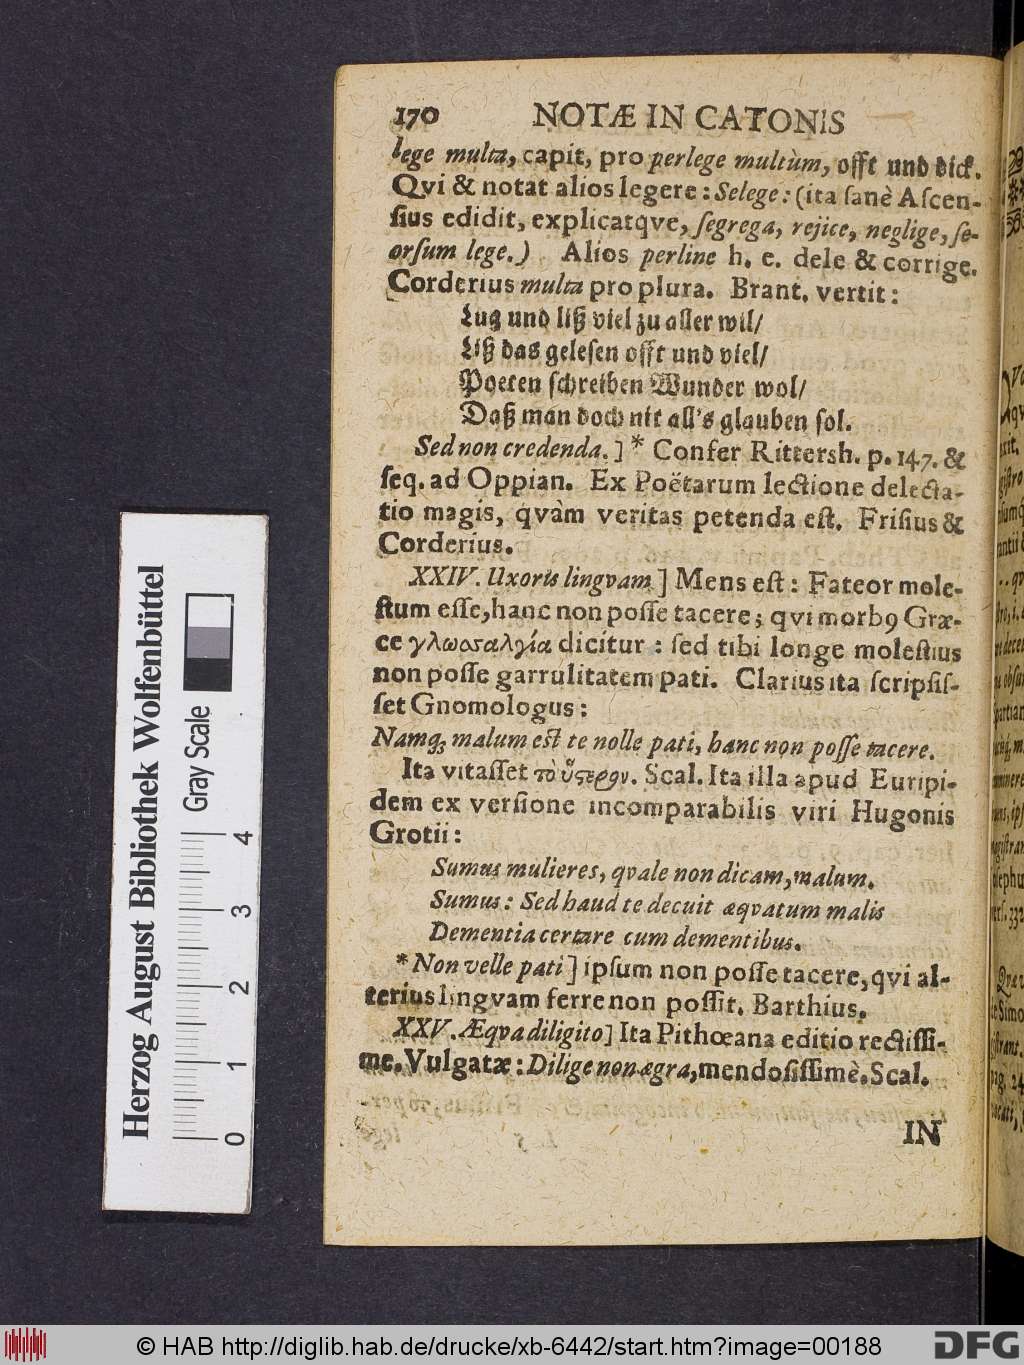 170 NOTÆ IN CATONIS
lege multa, capit, pro perlege multùm, offt und dick.
Qvi & notat alios legere: Selege: (ita sanè Ascen-
sius edidit, explicatqve, segrega, rejice, neglige, se-
orsum lege.) Alios perline h. e. dele & corrige.
Corderius multa pro plura. Brant. vertit:
Lug und liß viel zu aller wil/
Liß das gelesen offt und viel/
Poeten schreiben Wunder wol/
Daß man doch nit all's glauben sol.
Sed non credenda.] * Confer Rittersh. p. 147. &
seq. ad Oppian. Ex Poëtarum lectione delecta-
tio magis, qvàm veritas petenda est. Frisius &
Corderius.
XXIV. Uxoris lingvam] Mens est: Fateor mole-
stum esse, hanc non posse tacere; qvi morbꝯ Græ-
ce γλωσσαλγία dicitur: sed tibi longe molestius
non posse garrulitatem pati. Clarius ita scripsis-
set Gnomologus:
Namq; malum est te nolle pati, hanc non posse tacere.
Ita vitasset τὸ ὕστερον. Scal. Ita illa apud Euripi-
dem ex versione incomparabilis viri Hugonis
Grotii:
Sumus mulieres, qvale non dicam, malum.
Sumus: Sed haud te decuit æqvatum malis
Dementia certare cum dementibus.
* Non velle pati] ipsum non posse tacere, qvi al-
terius lingvam ferre non possit. Barthius.
XXV. Æqva diligito] Ita Pithœana editio rectissi-
me. Vulgatæ: Dilige non ægra, mendosissimè. Scal.
IN
Herzog August Bibliothek Wolfenbüttel
Gray Scale
0 1 2 3 4
© HAB http://diglib.hab.de/drucke/xb-6442/start.htm?image=00188
DFG